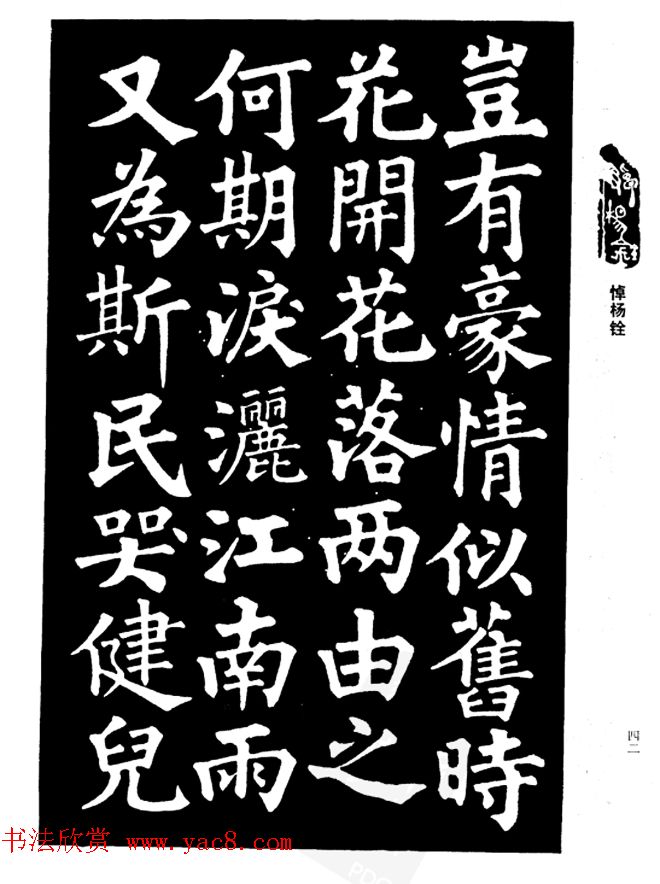 豈有豪情似舊時
花開花落两由之
何期淚灑江南雨
又為斯民哭健兒
悼杨铨
悼杨铨
四二
书法欣赏 www.yac8.com